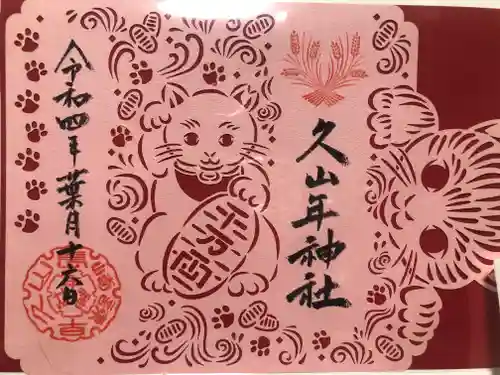 久山年神社
千万両
令和四年 葉月十六日